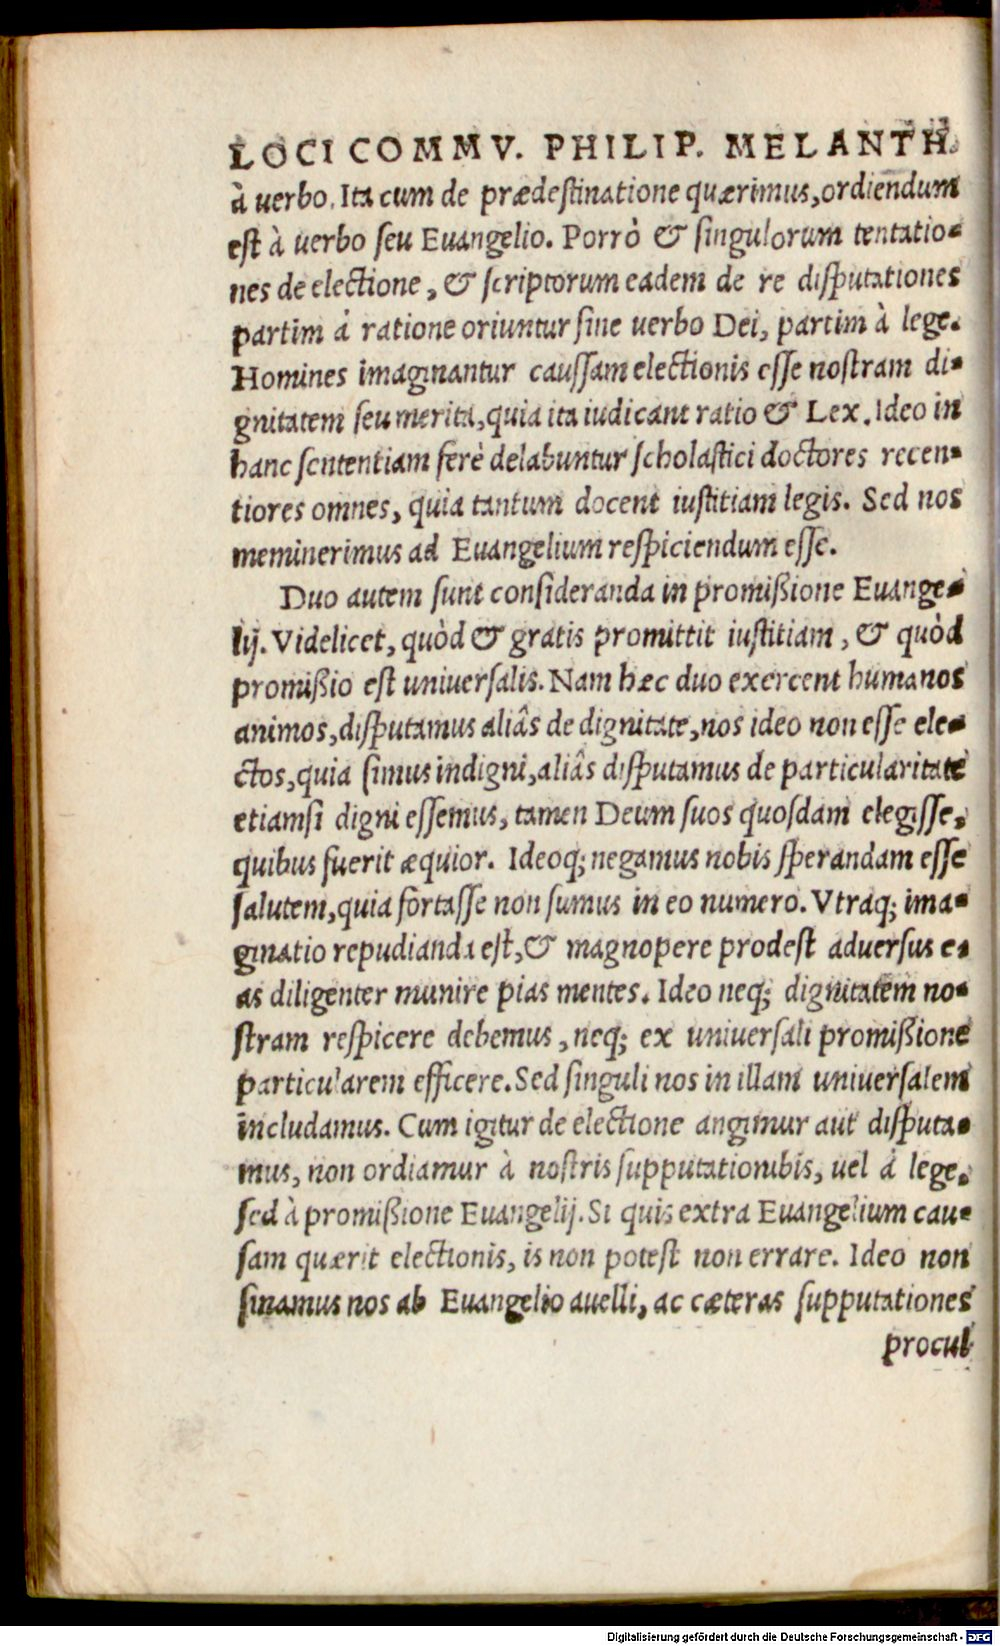 LOCI COMMV. PHILIP. MELANTH.
à uerbo. Ita cum de prædestinatione quærimus, ordiendum
est à uerbo seu Euangelio. Porrò & singulorum tentatio-
nes de electione, & scriptorum eadem de re disputationes
partim à ratione oriuntur sine uerbo Dei, partim à lege.
Homines imaginantur caussam electionis esse nostram di-
gnitatem seu merita, quia ita iudicant ratio & Lex. Ideo in
hanc sententiam ferè delabuntur scholastici doctores recen-
tiores omnes, quia tantum docent iustitiam legis. Sed nos
meminerimus ad Euangelium respiciendum esse.
Duo autem sunt consideranda in promißione Euange-
lij. Videlicet, quòd & gratis promittit iustitiam, & quòd
promißio est uniuersalis. Nam hæc duo exercent humanos
animos, disputamus aliâs de dignitate, nos ideo non esse ele-
ctos, quia simus indigni, aliâs disputamus de particularitate
etiamsi digni essemus, tamen Deum suos quosdam elegisse,
quibus fuerit æquior. Ideoq; negamus nobis sperandam esse
salutem, quia fortasse non sumus in eo numero. Vtraq; ima-
ginatio repudianda est, & magnopere prodest aduersus e-
as diligenter munire pias mentes. Ideo neq; dignitatem no-
stram respicere debemus, neq; ex uniuersali promißione
particularem efficere. Sed singuli nos in illam uniuersalem
includamus. Cum igitur de electione angimur aut disputa-
mus, non ordiamur à nostris supputationibis, uel à lege,
sed à promißione Euangelij. Si quis extra Euangelium cau-
sam quærit electionis, is non potest non errare. Ideo non
sinamus nos ab Euangelio auelli, ac cæteras supputationes
procul
Digitalisierung gefördert durch die Deutsche Forschungsgemeinschaft - DFG